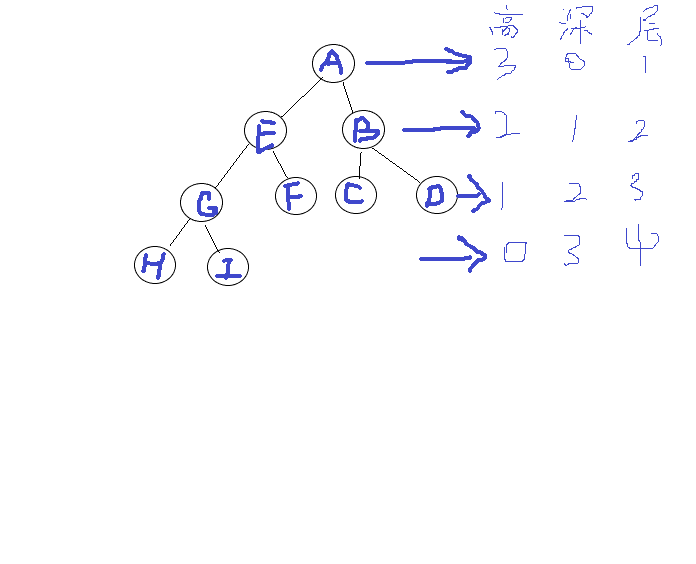 高 深 层
A 3 0 1
E B 2 1 2
G F C D 1 2 3
H I 0 3 4